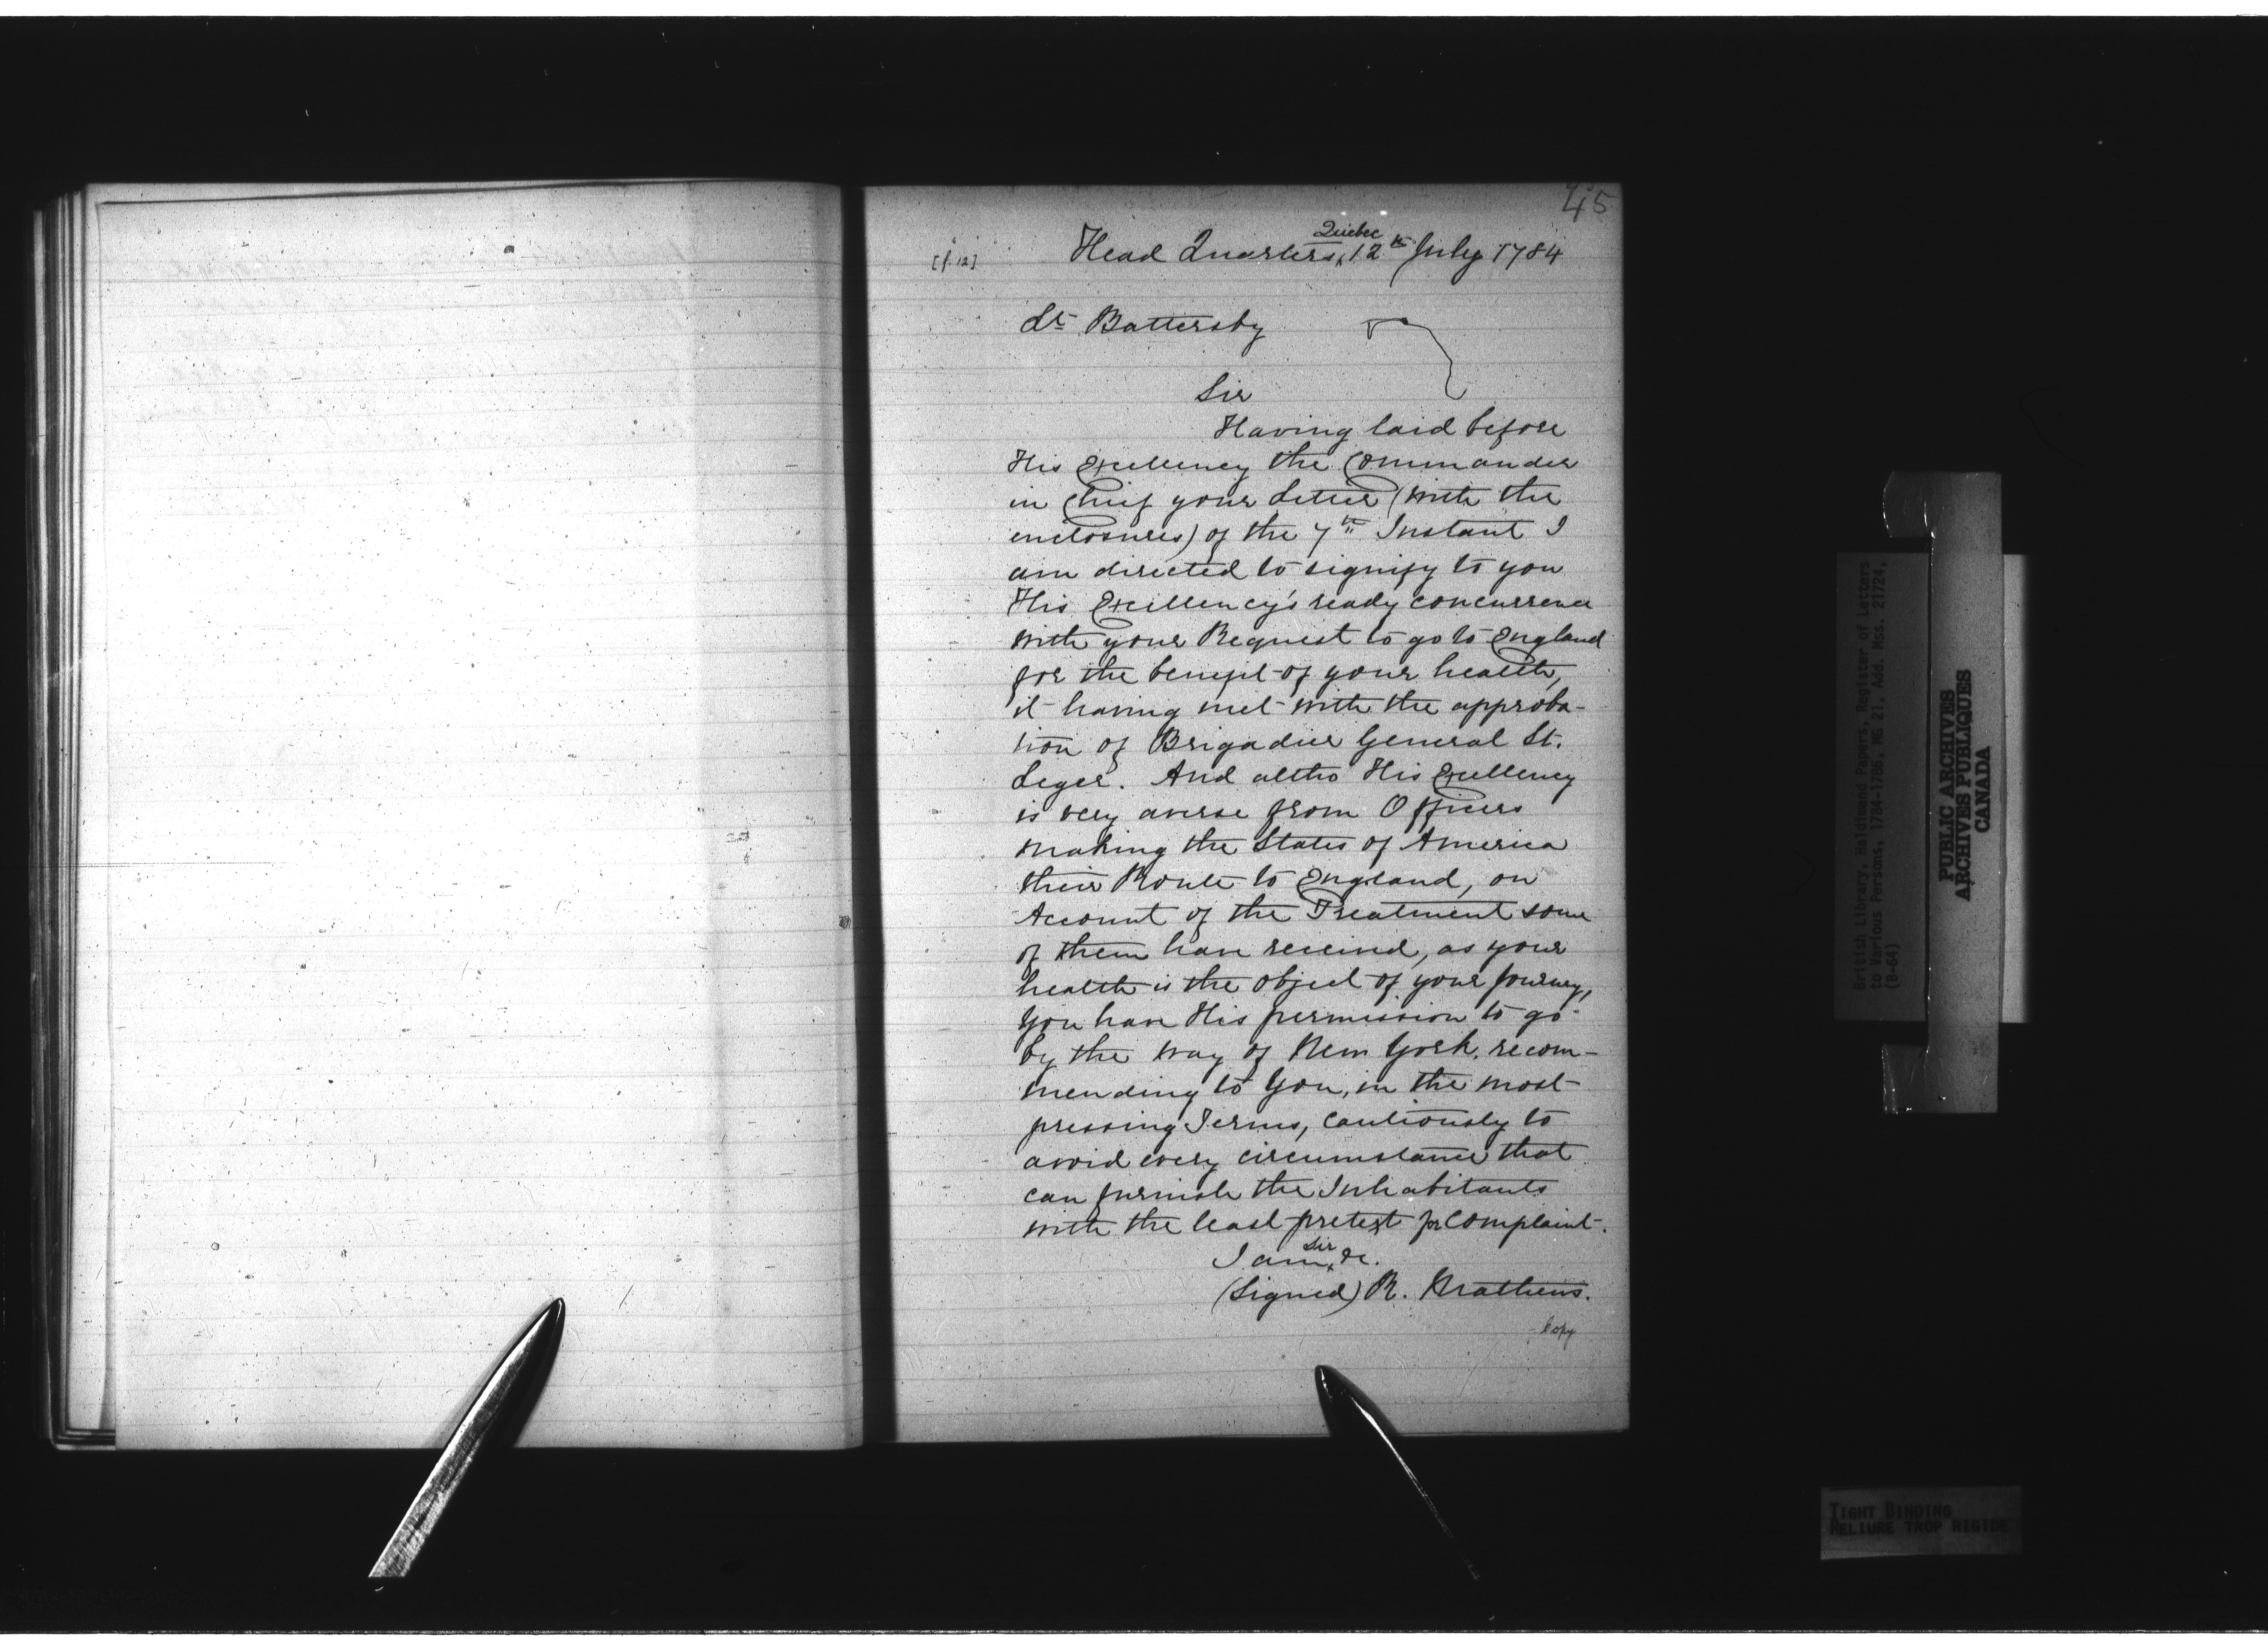 45
[f. 12]
Head Quarters, Quebec 12th July 1784
Lt Battersby
Sir
Having laid before
His Excellency the Commander
in Chief your Letter (with the
enclosures) of the 7th Instant I
am directed to signify to you
His Excellency's ready concurrence
with your Request to go to England
for the benefit of your health,
it having met with the approba-
tion of Brigadier General St.
Leger. And altho His Excellency
is very averse from Officers
making the States of America
their Route to England, on
Account of the Treatment some
of them have received, as your
health is the object of your Journey,
You have His permission to go
by the way of New York, recom-
mending to You, in the most
pressing Terms, cautiously to
avoid every circumstance that
can furnish the Inhabitants
with the least pretext for Complaint.
I am Sir &c.
(Signed) R. Mathews.
Copy
British Library, Haldimand Papers. Register of Letters
to Various Persons, 1784-1786, MG 21, Add. Mss. 21724,
(B-64)
PUBLIC ARCHIVES
ARCHIVES PUBLIQUES
CANADA
TIGHT BINDING
RELIURE TROP RIGIDE